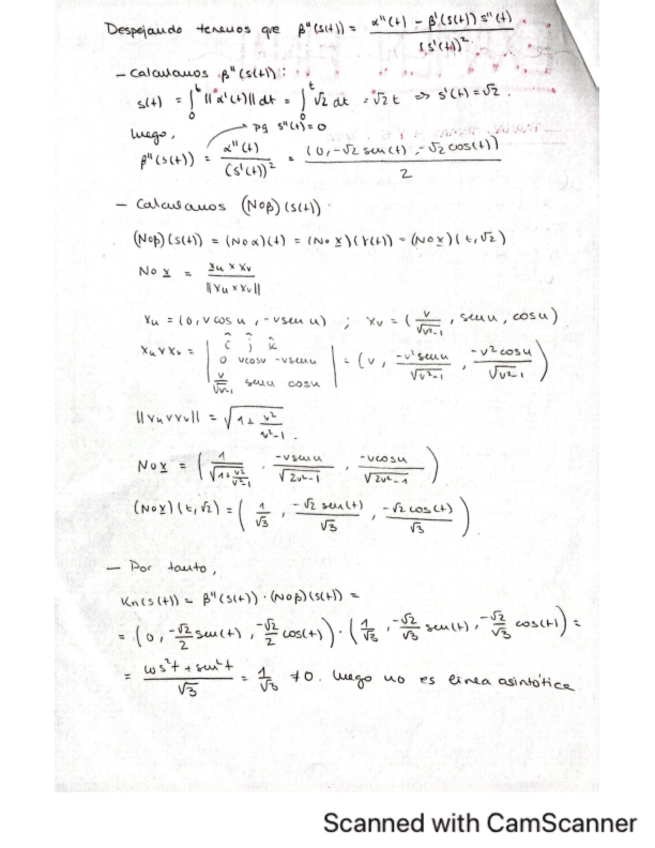 Despejando tenemos que β''(s(t)) = (α''(t) - β'(s(t)) s''(t)) / (s'(t))²
- Calculamos β''(s(t)):
s(t) = ∫₀ᵗ ||α'(t)|| dt = ∫₀ᵗ √2 dt = √2 t => s'(t) = √2.
luego, pq s''(t) = 0
β''(s(t)) = α''(t) / (s'(t))² = (0, -√2 sen(t), -√2 cos(t)) / 2
- Calculamos (Noβ)(s(t))
(Noβ)(s(t)) = (Noα)(t) = (Nox)(γ(t)) = (Nox)(t, √2)
Nox = xu × xv / ||xu × xv||
xu = (0, v cos u, -v sen u) ; xv = (v/√(v²-1), sen u, cos u)
xu × xv = | i j k ; 0 v cos u -v sen u ; v/√(v²-1) sen u cos u | = (v, -v² sen u/√(v²-1), -v² cos u/√(v²-1))
||xu × xv|| = √(1 + v²/(v²-1)).
Nox = (1/√(1+v²/(v²-1)), -v sen u/√(2v²-1), -v cos u/√(2v²-1))
(Nox)(t, √2) = (1/√3, -√2 sen(t)/√3, -√2 cos(t)/√3)
- Por tanto,
Kn(s(t)) = β''(s(t)) · (Noβ)(s(t)) =
= (0, -√2/2 sen(t), -√2/2 cos(t)) · (1/√3, -√2/√3 sen(t), -√2/√3 cos(t)) =
= (cos²t + sen²t)/√3 = 1/√3 ≠ 0. luego no es línea asintótica
Scanned with CamScanner